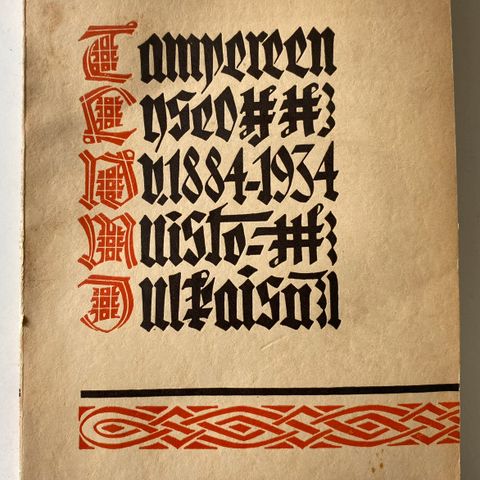 Tampereen
Lyseo
v.1884-1934
Muisto=
Julkaisu